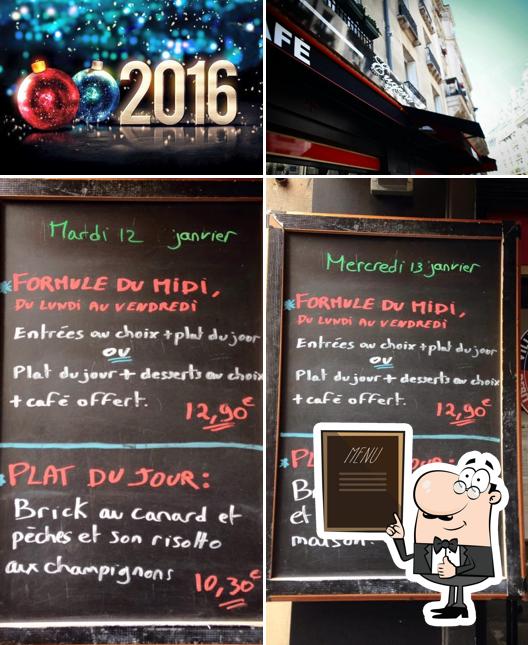 2016
AFÉ
Mardi 12 janvier
FORMULE DU MIDI,
DU LUNDI AU VENDREDI
Entrées au choix + plat du jour
OU
Plat du jour + desserts au choix
+ café offert.
12,90€
PLAT DU JOUR:
Brick au canard et
pêches et son risotto
aux champignons
10,30€
Mercredi 13 janvier
FORMULE DU MIDI,
DU LUNDI AU VENDREDI
Entrées au choix + plat du jour
OU
Plat du jour + desserts au choix
+ café offert.
12,90€
MENU
et
maison.